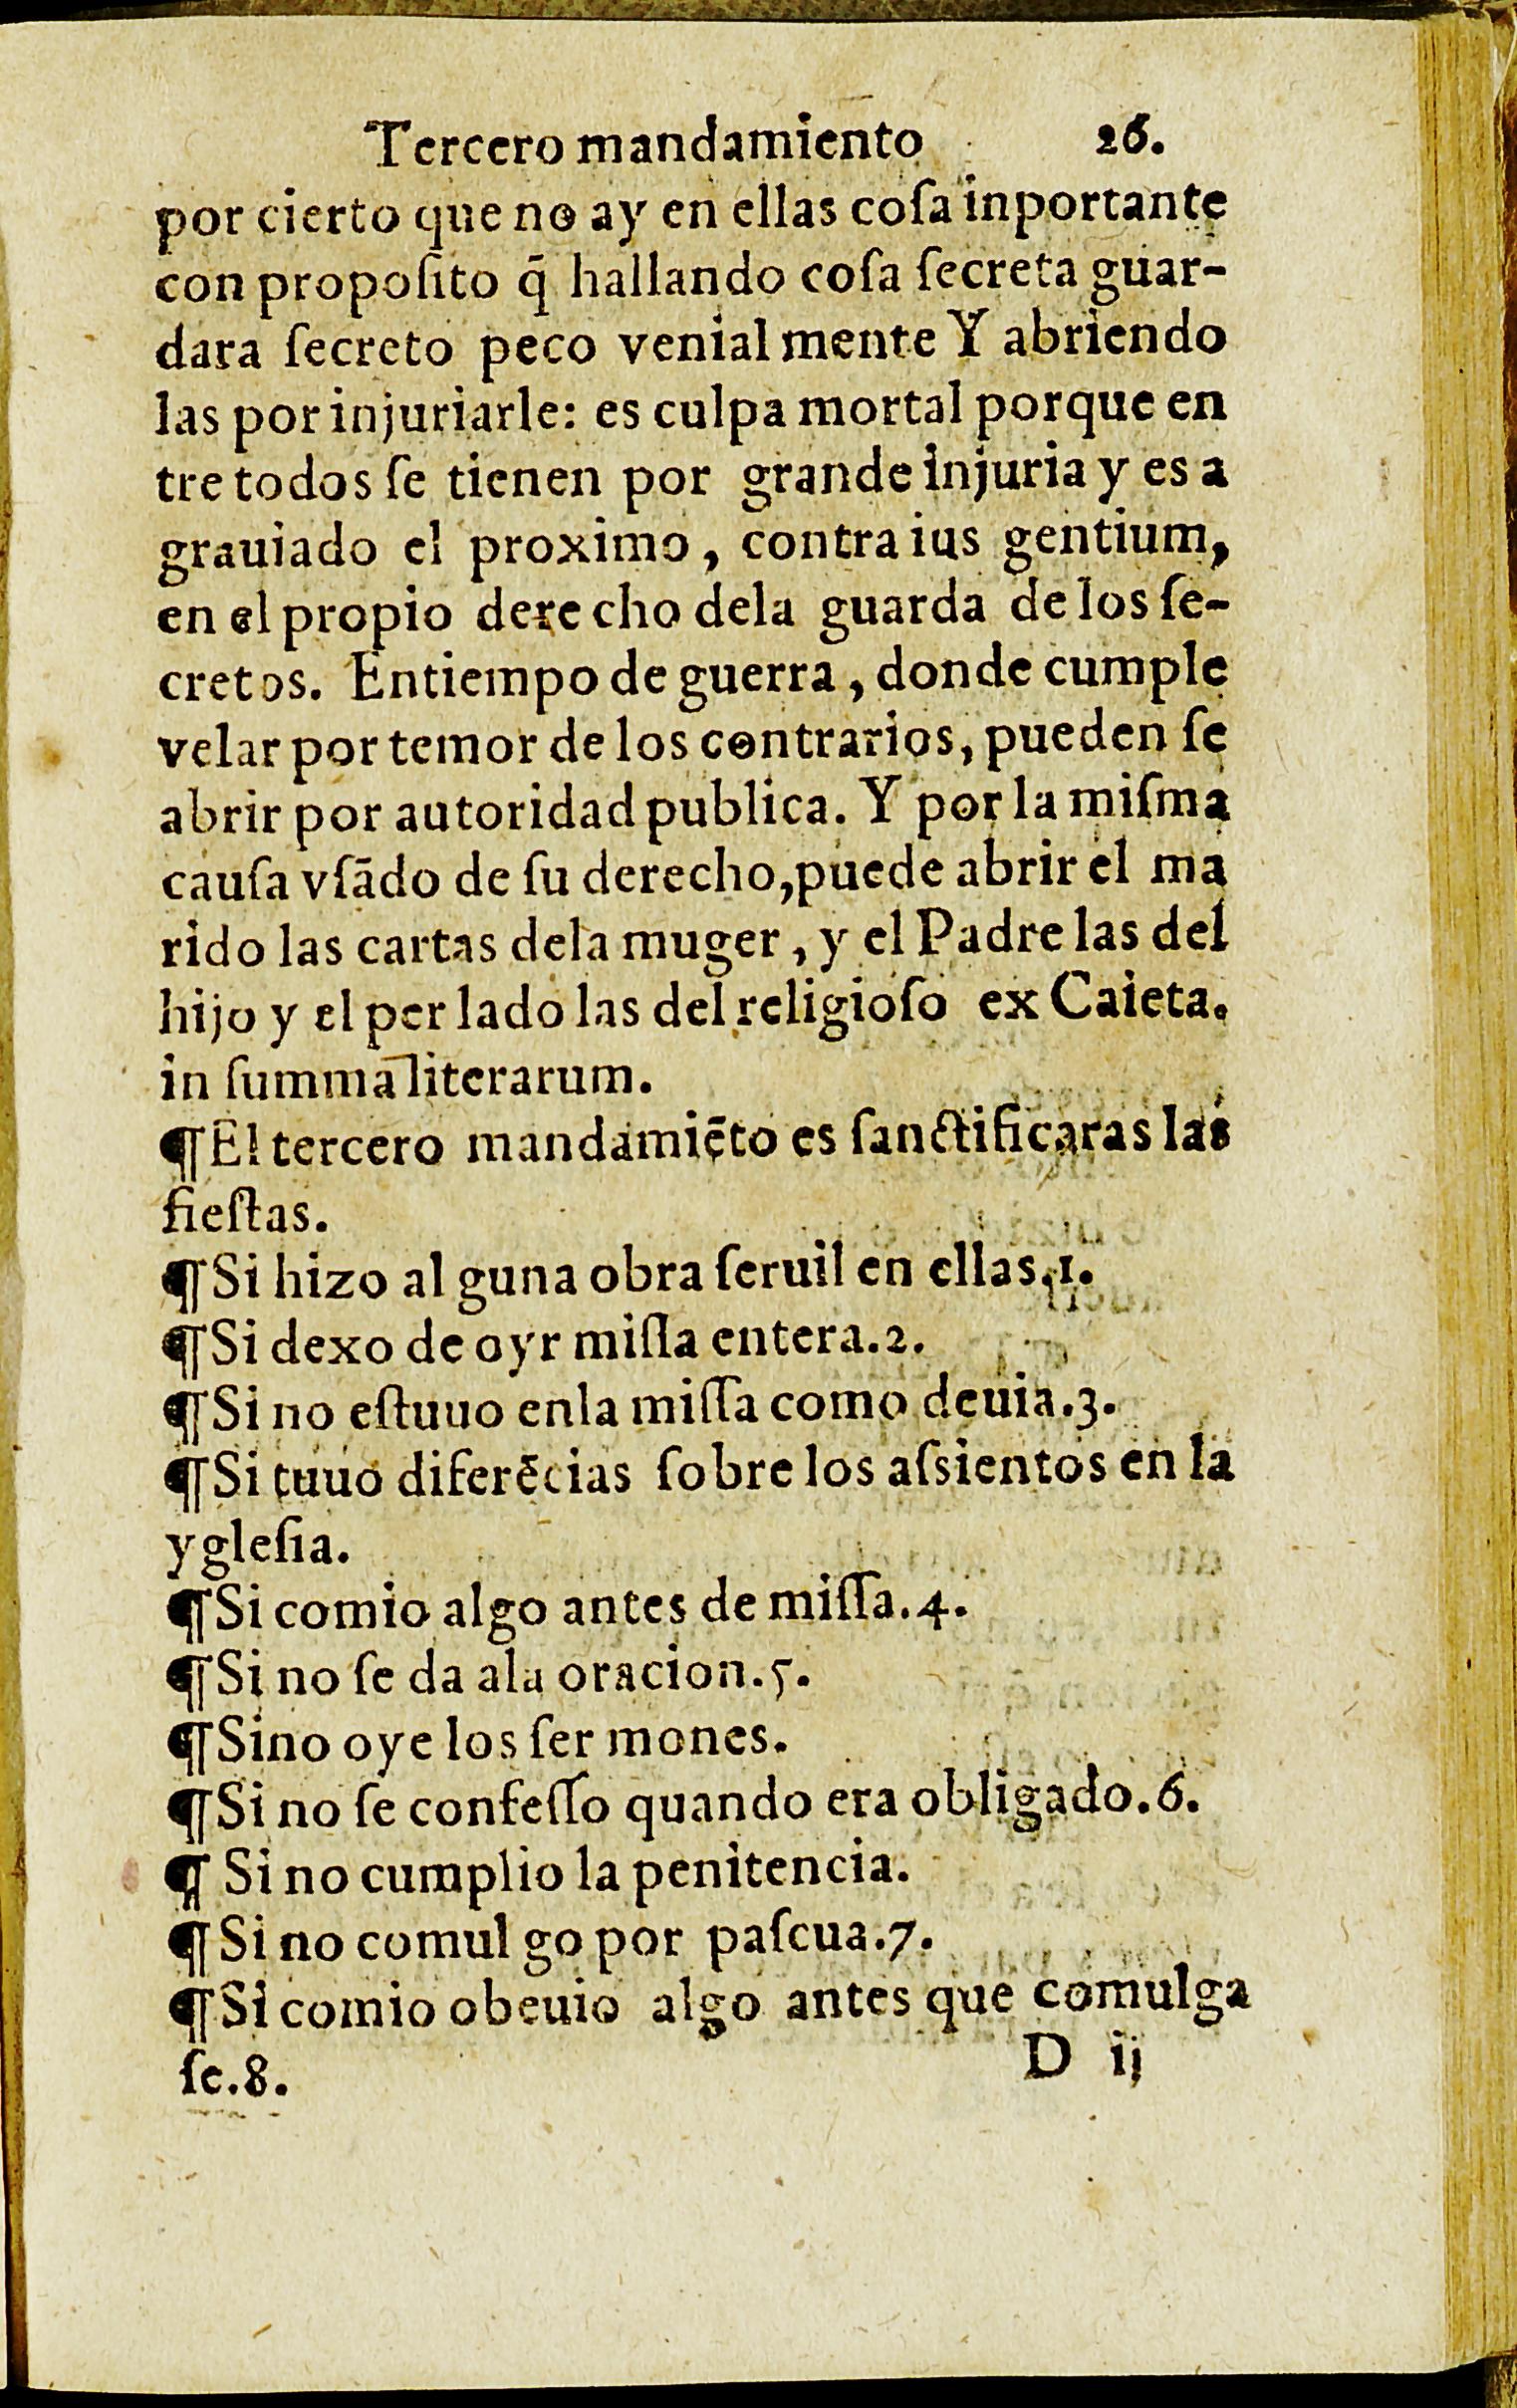 Tercero mandamiento 26.
por cierto que no ay en ellas coſa inportante
con propoſito q̃ hallando coſa ſecreta guar-
dara ſecreto peco venial mente Y abriendo
las por injuriarle: es culpa mortal porque en
tre todos ſe tienen por grande injuria y es a
grauiado el proximo, contra ius gentium,
en el propio dere cho dela guarda de los ſe-
cretos. Entiempo de guerra, donde cumple
velar por temor de los contrarios, pueden ſe
abrir por autoridad publica. Y por la miſma
cauſa vſãdo de ſu derecho,puede abrir el ma
rido las cartas dela muger, y el Padre las del
hijo y el per lado las del religioſo ex Caieta.
in ſumma literarum.
¶El tercero mandamiẽto es ſanctificaras las
fieſtas.
¶Si hizo al guna obra ſeruil en ellas.1.
¶Si dexo de oyr miſſa entera.2.
¶Si no eſtuuo enla miſſa como deuia.3.
¶Si tuuo diferẽcias ſobre los aſsientos en la
ygleſia.
¶Si comio algo antes de miſſa.4.
¶Si no ſe da ala oracion.5.
¶Sino oye los ſer mones.
¶Si no ſe confeſſo quando era obligado.6.
¶ Si no cumplio la penitencia.
¶Si no comul go por paſcua.7.
¶Si comio obeuio algo antes que comulga
ſe.8. D ij